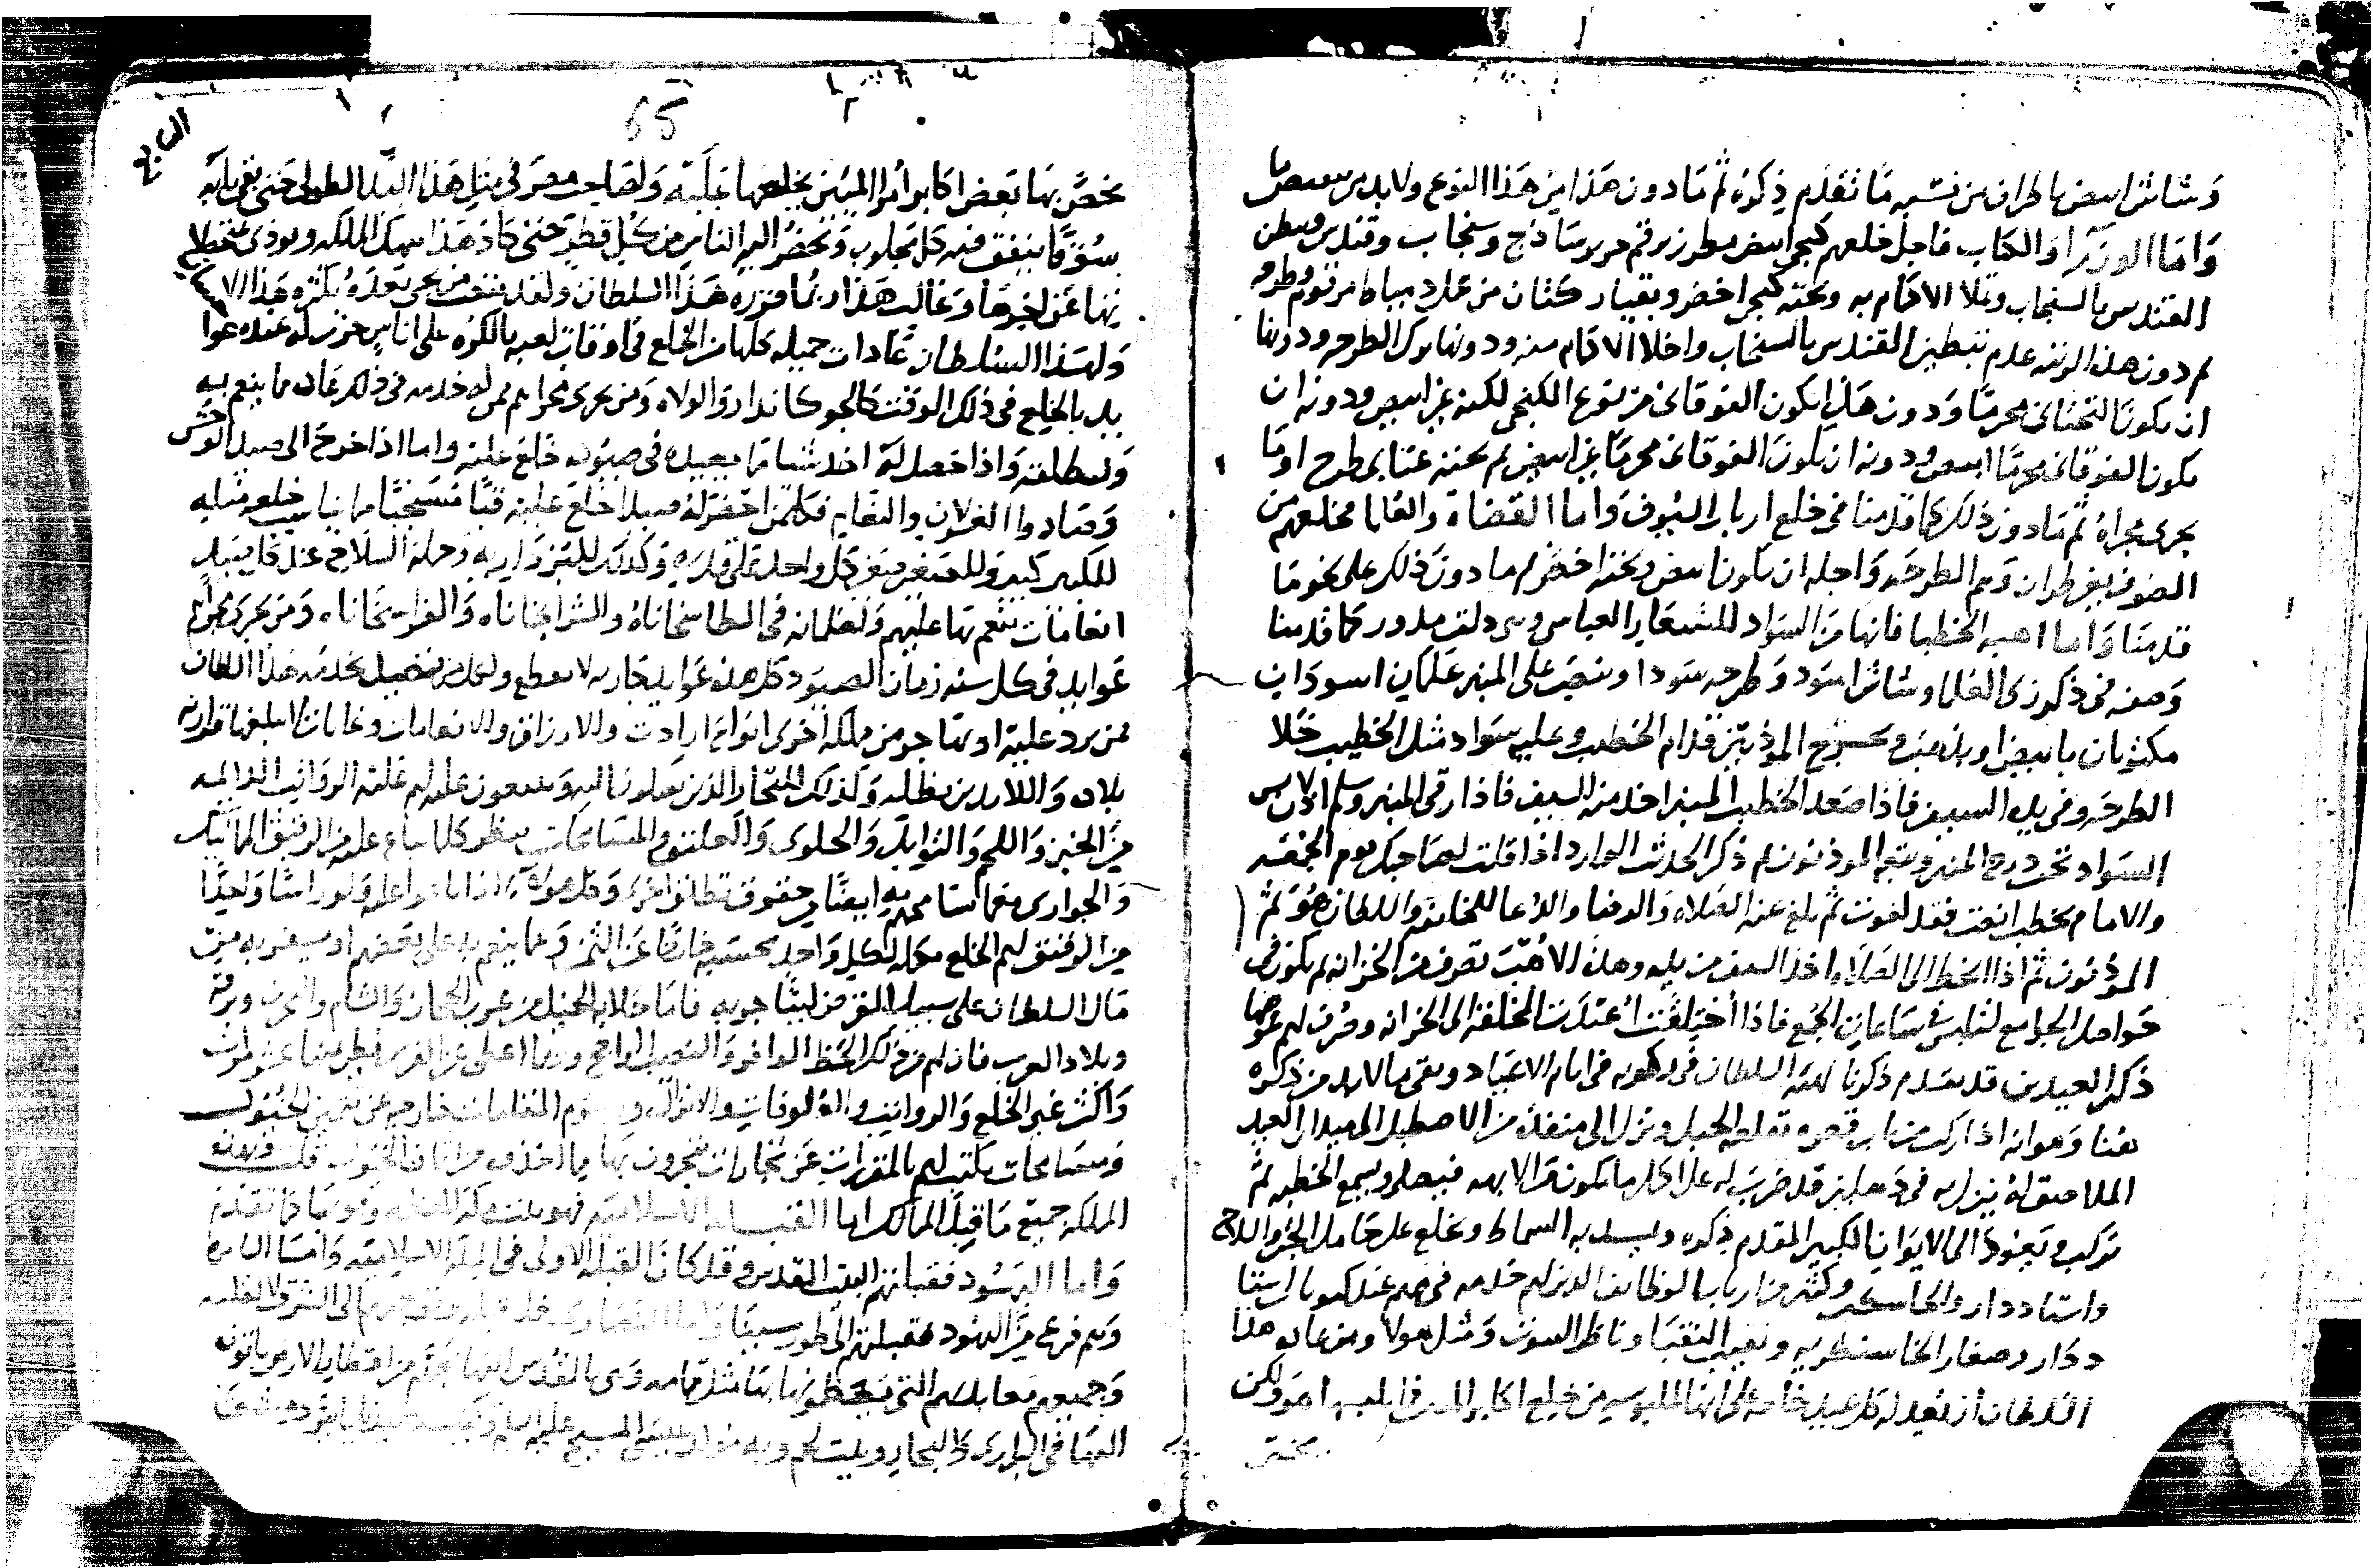 وشاش ابيض باطراف من نسبه ما تقدم ذكره ثم ما دون هذا من هذا النوع ولا بد من
واما الوزرا والكتاب فاجل خلعهم كنجي ابيض مطرز برقم حرير ساذج وسنجاب وقندس ويبطن
القندس بالسنجاب وتملا الاكمام به وتحته كنجي اخضر وبقيار كتان من عمل دمياط مرقوم وطرحه
ثم دون هذه الرتبه عدم تبطين القندس بالسنجاب واخلا الاكمام منه ودونها ترك الطرحه ودونها
ان يكون التحتاني مجرما ودون هذا ان يكون الفوقاني من نوع الكنجي لكنه غير ابيض ودونه ان
يكون الفوقاني مجرما ابيض ودونه ان يكون الفوقاني مجرما غير ابيض ثم تحته عتابي طرح او ما
يجري مجراه ثم ما دون ذلك كما قدمنا في خلع ارباب السيوف واما القضاة والعلما فخلعهم من
الصوف بغير طراز ولهم الطرحه واجلها ان يكون ابيض وتحته اخضر ثم ما دون ذلك على نحو ما
قدمنا واما اهب الخطبا فانها من السواد للشعار العباسي وهي دلق مدور كما قدمنا
وصفه في ذكر زي العلما وشاش اسود وطرحه سودا وينصب على المنبر علمان اسودان
مكتوبان بابيض او بذهب ويخرج الموذنين قدام الخطيب وعليه سواد مثل الخطيب خلا
الطرحه وفي يده السيف فاذا صعد الخطيب المنبر اخذ منه السيف فاذا رقي المنبر وسلم اذن
السواد تحت درج المنبر وتبعه الموذنون ثم ذكر الحديث الوارد اذا قلت لصاحبك يوم الجمعه
والامام يخطب انصت فقد لغوت ثم بلغ عند الصلاه والرضا والدعا للخليفه والسلطان هو ثم
الموذنون ثم اذا انحط الى الصلاه اخذ السيف من يده وهذه الاهب تصرف من الخزانه ثم تكون في
حواصل الجوامع لتلبس في ساعات الجمع فاذا اختلقت اعيدت المخلقه الى الخزانه وصرف لهم عوضها
ذكر العيدين قد تقدم ذكرنا لهيئه السلطان في ركوبه في ايام الاعياد وبقي ما لا بد من ذكره
هنا وهو انه اذا ركب من باب قصره بقلعه الجبل ونزل الى منفذه من الاصطبل الى ميدان العيد
الملاصق له ينزل به في دهليز قد ضرب له على اكمل ما يكون من الابهه فيصلي ويسمع الخطبه ثم
يركب ويعود الى الايوان الكبير المقدم ذكره ويمد به السماط ويخلع على حامل الجتر والسلاح
واستاد دار والجاشنكير وكثير من ارباب الوظائف الذين لهم خدمه في مهم عيد كنواب استا
ددار وصغار الجاشنكيريه ونقيب النقبا وناظر البيوت ومثل هولا ومن عاده هذا
السلطان ان تعد له كل عيد خلعه على انها لملبوسه من خلع اكابر المئين فما يلبسها هو ولكن
يختص
65
السابع
يخص بها بعض اكابر امرا المئين يخلعها عليه ولصاحب مصر في مثل هذا اليد الطولى حتى بقي بابه
سوقا ينفق فيه كل مجلوب ويحضر اليه الناس من كل قطر حتى كاد هذا ينهك المملكه ويودي
منها عن اخرها وغالب هذا ربما قرره هذا السلطان ولقد يتعب من يجي بعده بكثره هذا
ولهذا السلطان عادات جميله كلها من الخلع في اوقات لعبه بالكره على اناس جرت له عنده عوا
يد بالخلع في ذلك الوقت كالجوكاندار والولاه ومن يجري مجراهم ممن له خدمه في ذلك عاده ما ينعم به
وبطلقه واذا حصل له احد شيئا مما يصيده في صيوده خلع عليه واما اذا خرج الى صيد الوحش
وصادوا الغزلان والنعام فكل من احضر له صيدا خلع عليه قبا مسنجبا مما يناسب خلعه مثله
للكبير كبير وللصغير صغير كل واحد على قدره وكذلك للبزداريه وحمله السلاح عند كل صيد
انعامات ينعم بها عليهم ولغلمانه في الطاستخاناه والشرابخاناه والفراشخاناه ومن يجري مجراهم
عوايد في كل سنه زمان الصيود كل هذه عوايد جاريه لا تنقطع ولكل من يتصل بخدمه هذا السلطان
ممن يرد عليه او يهاجر من مملكه اخرى انواع ادرارات والارزاق والانعامات وغايات ما تبلغها قدره
بلاده واللاردين نظله وكذلك التجار الذين يصلون اليه ويبيعون عليه لهم عليه الرواتب الدائمه
من الخبز واللحم والتوابل والحلوى والعليق والمسامحات بنظير كلما يباع عليه من الرقيق المماليك
والجواري مع ما يسامحهم به ايضا من حقوق تطلق اخرى وكل هولا اذا باعوا عليه ولو راسا واحدا
من الرقيق لهم الخلع مكمله لكل واحد بحسبه خارجا عن الثمن وعما ينعم به على بعضهم او يسفر به من
مال السلطان على سبيل القرض ليتاجر به فاما جلابه الخيل من عرب الحجاز والشام والبحرين وبرقه
وبلاد العرب فان لهم من ذلك الحظ الوافر والنصيب الراجح وربما اعطى عن الفرس نظير ثمنه عشر مرات
واكثر غير الخلع والرواتب والعلوفات والانزال ورسوم المقامات خارجا عن ثمن الخيول
ومسامحات تكتب لهم بالمقررات عن تجارات يتجرون بها مما اخذوه من اثمان الخيول قلت وبهذه
المملكه جميع ما قبل الممالك اما القبله الاسلاميه فهو بيت مكه المعظمه وتوجها كما تقدم
واما اليهود فقبلتهم البيت المقدس وقد كان القبله الاولى في المله الاسلاميه واما السامره
وهم فرع من اليهود فقبلتهم الى طور سينا واما النصارى فلا قبله وتوجههم الى الشرق لا لقبله
وجميع معابدهم التي يعظمونها بها مثل قمامه وهي بالقدس اليها يحج من اقطار الارض ياتون
اليها في البراري والبحار وبيت لحم وبه مولد عيسى المسيح عليه السلام وكنيسه صيدنايا بدمشق